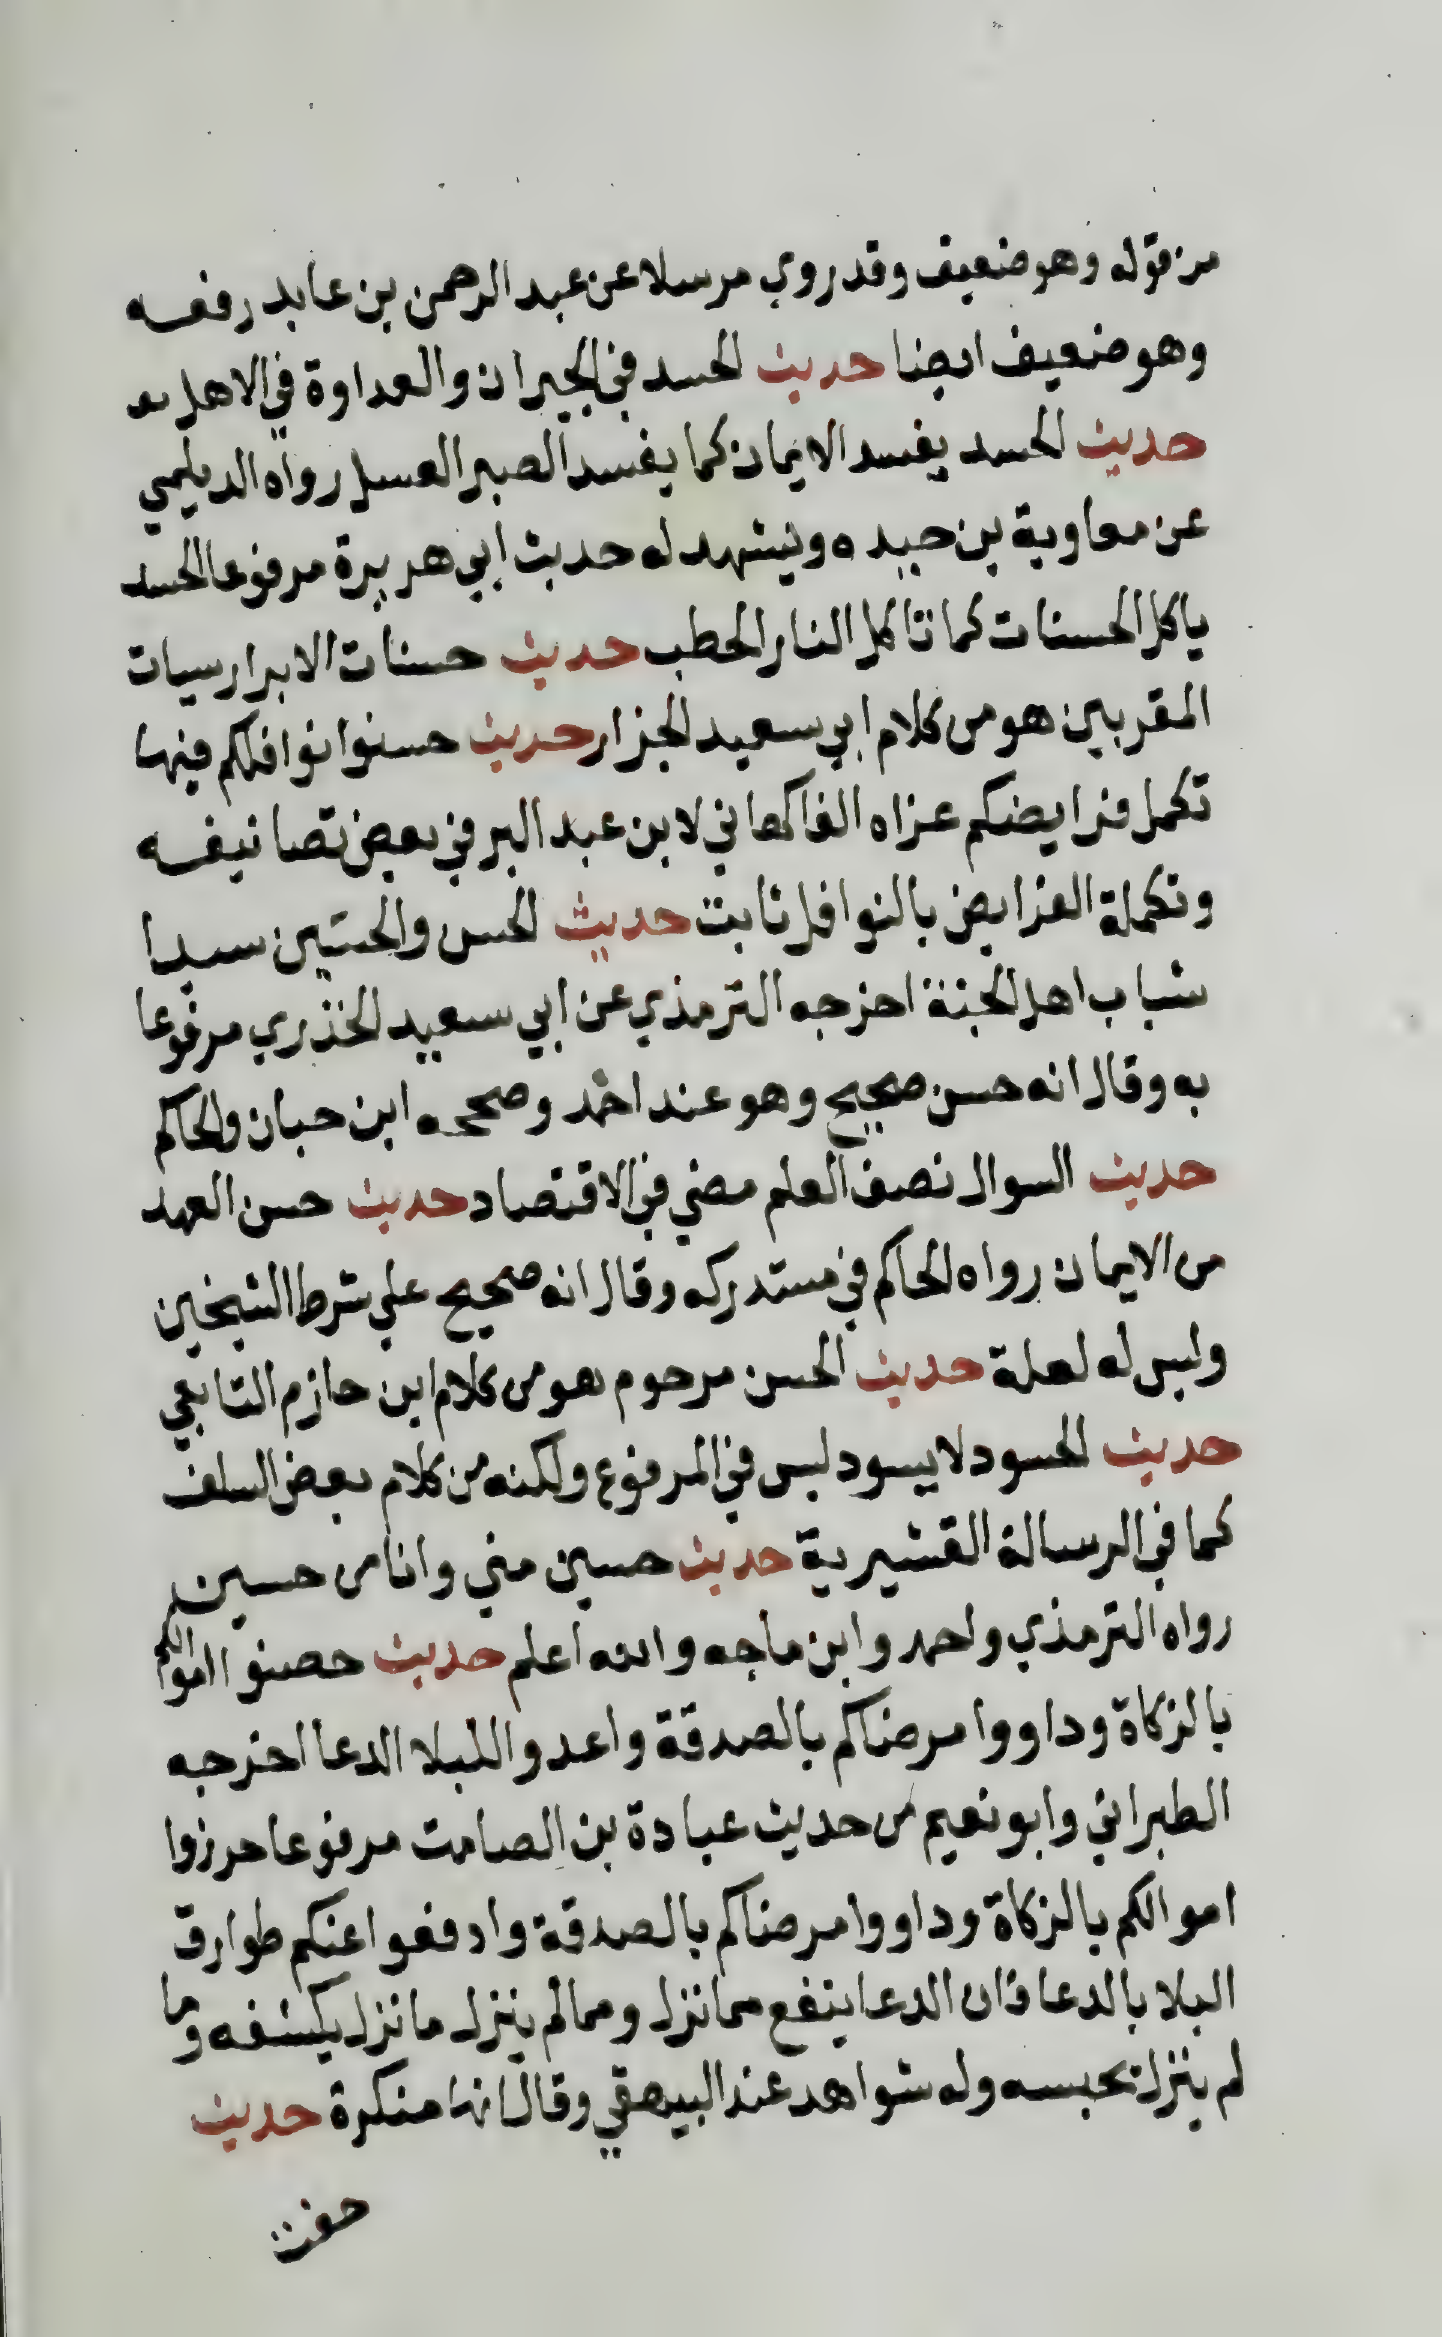 من قوله وهو ضعيف وقد روي مرسلا عن عبد الرحمن بن عابد رفعه
وهو ضعيف ايضا حديث الحسد في الجيران والعداوة في الاهل
حديث الحسد يفسد الايمان كما يفسد الصبر العسل رواه الديلمي
عن معاوية بن حيده ويشهد له حديث ابي هريرة مرفوعا الحسد
ياكل الحسنات كما تاكل النار الحطب حديث حسنات الابرار سيات
المقربين هو من كلام ابي سعيد الخزار حديث حسنوا نوافلكم فبها
تكمل فرايضكم عزاه الفاكهاني لابن عبد البر في بعض تصانيفه
وتكملة الفرايض بالنوافل ثابت حديث الحسن والحسين سيدا
شباب اهل الجنة اخرجه الترمذي عن ابي سعيد الخذري مرفوعا
به وقال انه حسن صحيح وهو عند احمد وصححه ابن حبان والحاكم
حديث السوال نصف العلم مضي في الاقتصاد حديث حسن العهد
من الايمان رواه الحاكم في مستدركه وقال انه صحيح علي شرط الشيخين
وليس له لعلة حديث الحسن مرحوم هو من كلام ابن حازم التابعي
حديث الحسود لا يسود ليس في المرفوع ولكنه من كلام بعض السلف
كما في الرسالة القشيرية حديث حسين مني وانا من حسين
رواه الترمذي واحمد وابن ماجه والله اعلم حديث حصنوا اموالكم
بالزكاة وداووا مرضاكم بالصدقة واعدوا للبلا الدعا اخرجه
الطبراني وابو نعيم من حديث عبادة بن الصامت مرفوعا حرزوا
اموالكم بالزكاة وداووا مرضاكم بالصدقة وادفعوا عنكم طوارق
البلا بالدعا فان الدعا ينفع مما نزل ومما لم ينزل ما نزل يكشفه وما
لم ينزل يحبسه وله شواهد عند البيهقي وقال انها منكرة حديث
حفت